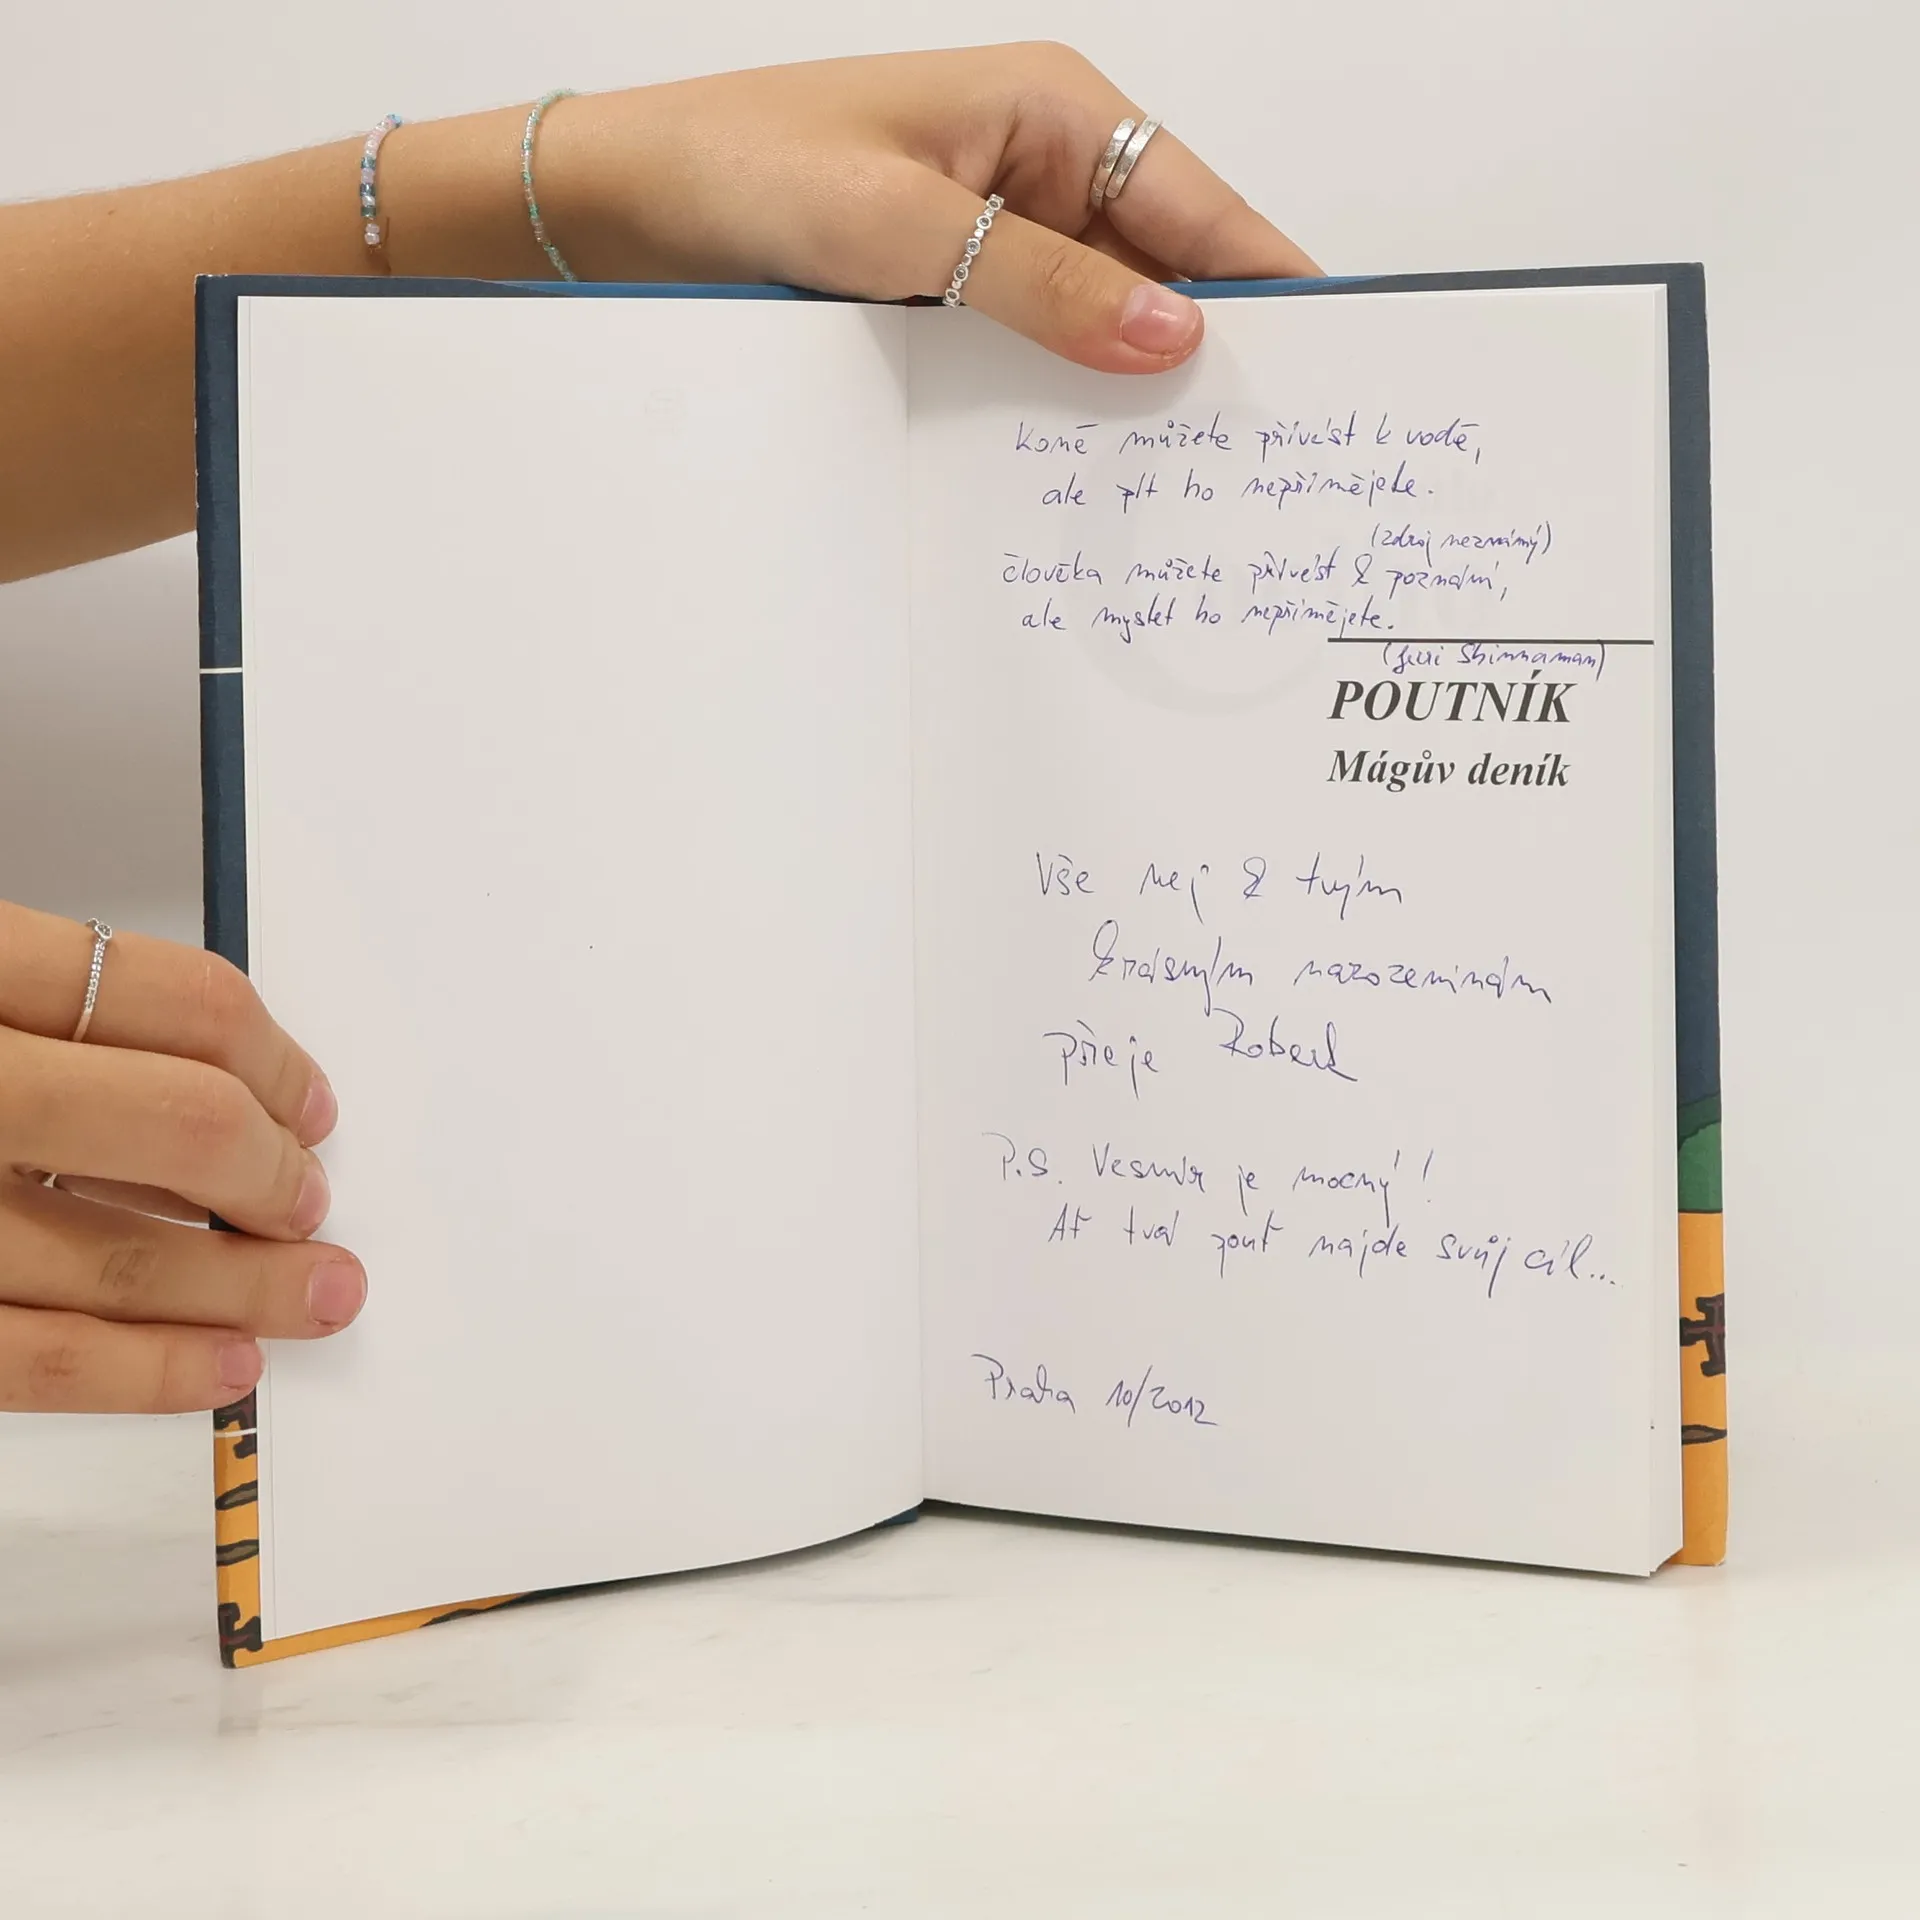 Koně můžete přivést k vodě,
ale pít ho nepřimějete.
(zdroj neznámý)
člověka můžete přivést k poznání,
ale myslet ho nepřimějete.
(Jeri Shinnaman)
POUTNÍK
Mágův deník
Vše nej k tvým
krásným narozeninám
přeje Robert
P.S. Vesmír je mocný!
Ať tvá pouť najde svůj cíl...
Praha 10/2012